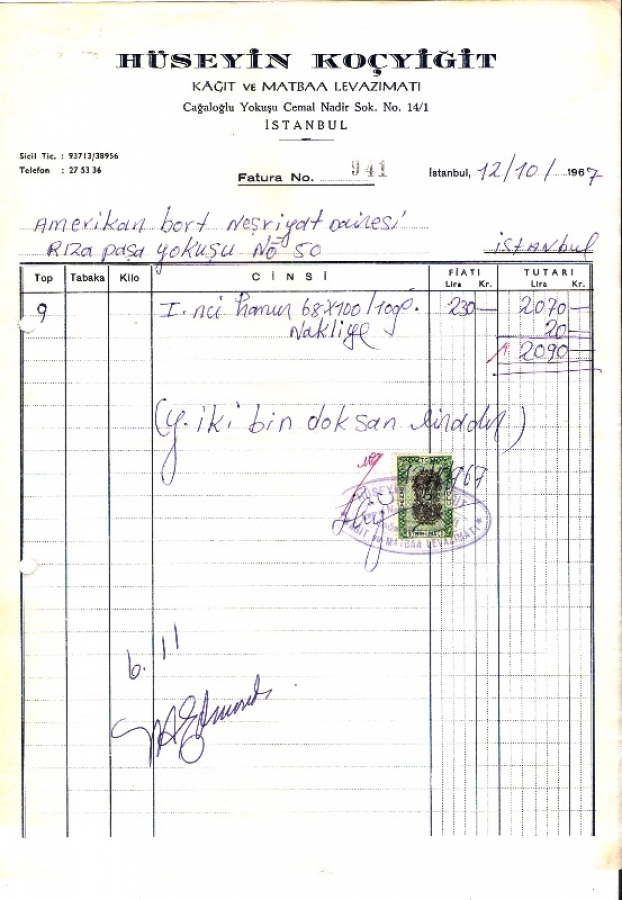 HÜSEYİN KOÇYİĞİT
KÂĞIT VE MATBAA LEVAZIMATI
Cağaloğlu Yokuşu Cemal Nadir Sok. No. 14/1
İSTANBUL
Sicil Tic. : 93713/38956
Telefon : 27 53 36
Fatura No. 941
İstanbul, 12/10/1967
Amerikan bort Neşriyat Dairesi
Rıza paşa yokuşu No 50 istanbul
Top Tabaka Kilo CİNSİ FİATI Lira Kr. TUTARI Lira Kr.
9 I. nci hamur 68x100/100g. 230— 2070—
Nakliye 20—
2090—
(Y. iki bin doksan liradır)
HÜSEYİN
VE MATBAA LEVAZIMATI
6. 11